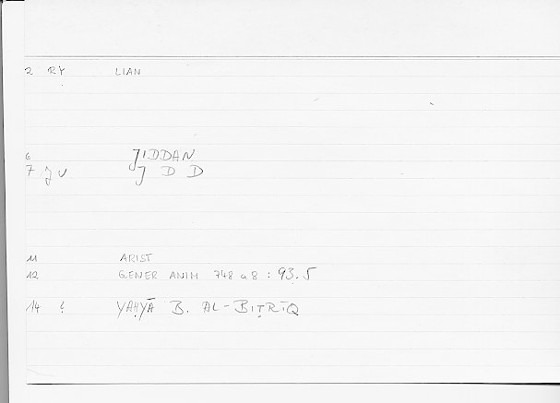 2 RY LIAN
6 JIDDAN
7 J V J D D
11 ARIST
12 GENER ANIM 748 a 8 : 93.5
14 YAḤYĀ B. AL-BIṬRĪQ